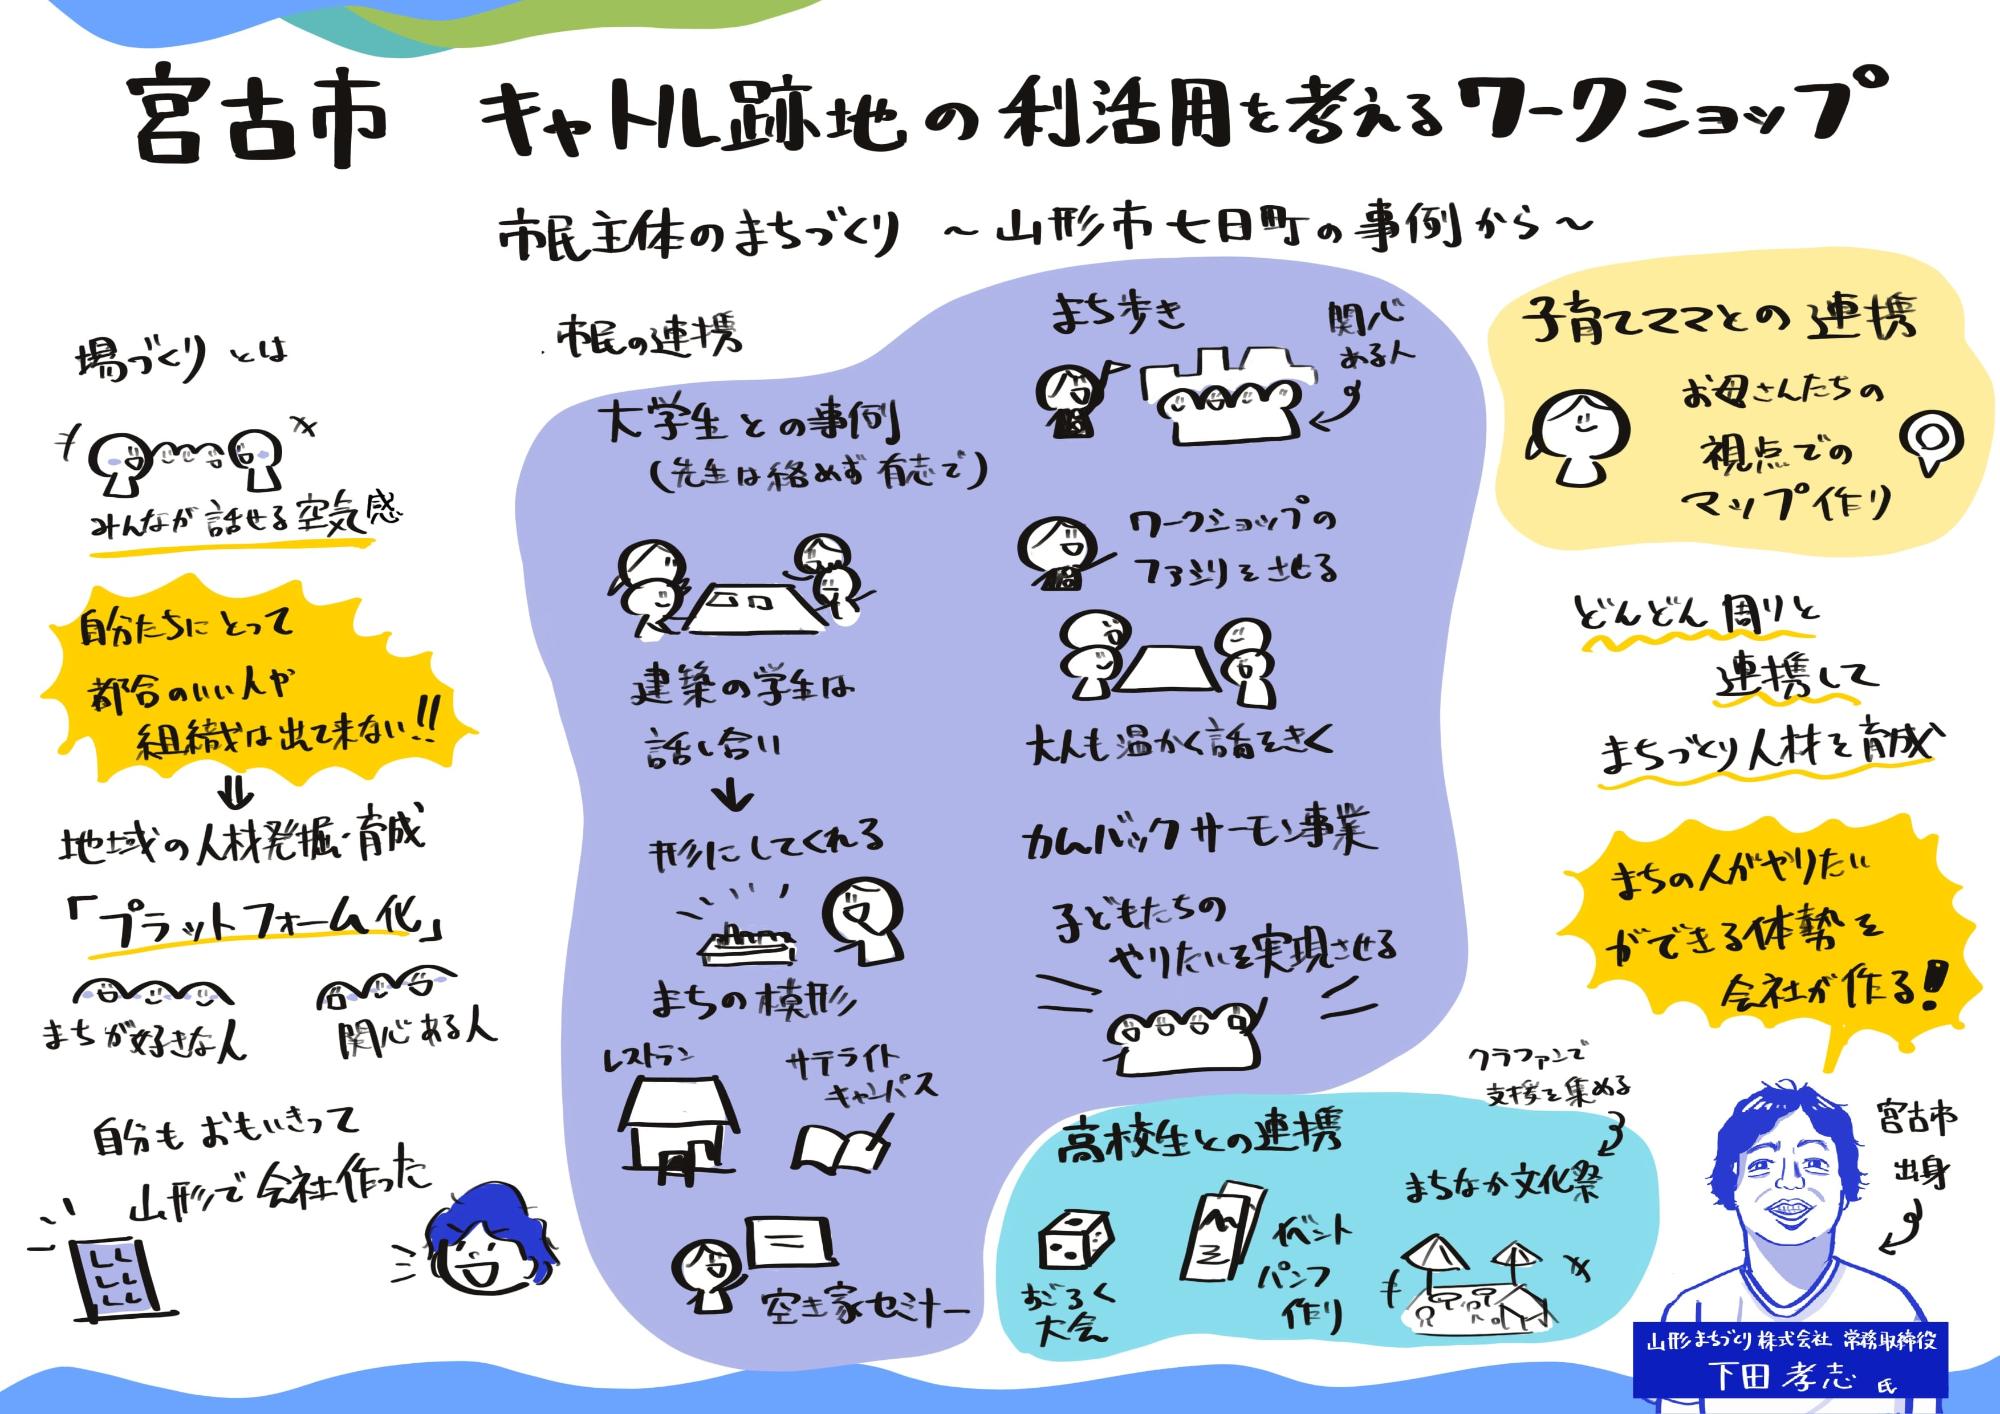 宮古市 キャトル跡地の利活用を考えるワークショップ
市民主体のまちづくり ～山形市七日町の事例から～
場づくりとは
みんなが話せる空気感
自分たちにとって
都合のいい人や
組織は出て来ない!!
地域の人材発掘・育成
「プラットフォーム化」
まちが好きな人
関心ある人
自分もおもいきって
山形で会社作った
市民の連携
大学生との事例
(先生は絡めず有志で)
建築の学生は
話し合い
形にしてくれる
まちの模形
レストラン
サテライト
キャンパス
空き家セミナー
まち歩き
関心
ある人
ワークショップの
ファシリをさせる
大人も温かく話をきく
カムバックサーモン事業
子どもたちの
やりたいを実現させる
高校生との連携
おどろく
大会
イベント
パンフ
作り
クラファンで
支援を集める
まちなか文化祭
子育てママとの連携
お母さんたちの
視点での
マップ作り
どんどん周りと
連携して
まちづくり人材を育成
まちの人がやりたい
ができる体勢を
会社が作る!
宮古市
出身
山形まちづくり株式会社 常務取締役
下田 孝志 氏